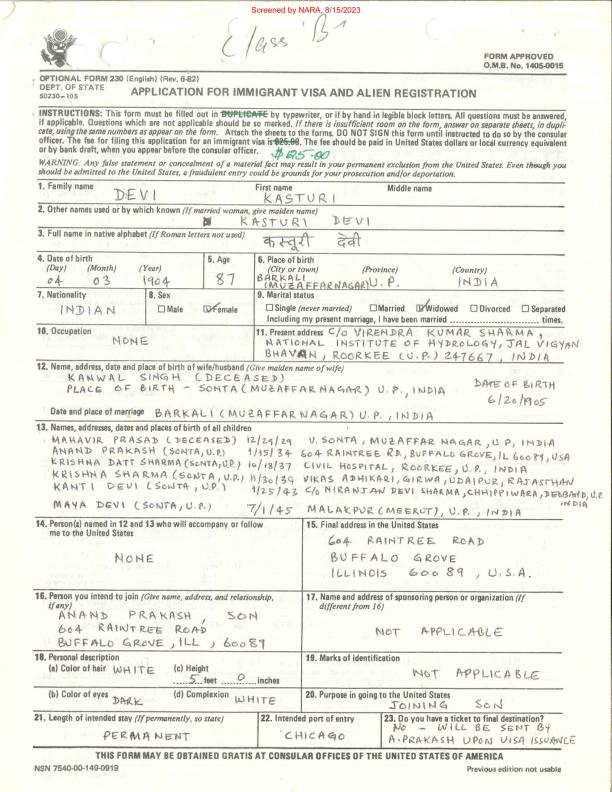 Screened by NARA, 8/15/2023
Class B1
FORM APPROVED
O.M.B. No. 1405-0015
OPTIONAL FORM 230 (English) (Rev. 6-82)
DEPT. OF STATE
50230-105
APPLICATION FOR IMMIGRANT VISA AND ALIEN REGISTRATION
INSTRUCTIONS: This form must be filled out in DUPLICATE by typewriter, or if by hand in legible block letters. All questions must be answered,
if applicable. Questions which are not applicable should be so marked. If there is insufficient room on the form, answer on separate sheets, in dupli-
cate, using the same numbers as appear on the form. Attach the sheets to the forms. DO NOT SIGN this form until instructed to do so by the consular
officer. The fee for filing this application for an immigrant visa is $25.00. The fee should be paid in United States dollars or local currency equivalent
or by bank draft, when you appear before the consular officer. $125.00
WARNING: Any false statement or concealment of a material fact may result in your permanent exclusion from the United States. Even though you
should be admitted to the United States, a fraudulent entry could be grounds for your prosecution and/or deportation.
1. Family name First name Middle name
DEVI KASTURI
2. Other names used or by which known (If married woman, give maiden name)
KASTURI DEVI
3. Full name in native alphabet (If Roman letters not used)
कस्तूरी देवी
4. Date of birth
(Day) (Month) (Year)
04 03 1904
5. Age
87
6. Place of birth
(City or town) (Province) (Country)
BARKALI
(MUZAFFARNAGAR) U.P. INDIA
7. Nationality
INDIAN
8. Sex
Male Female
9. Marital status
Single (never married) Married Widowed Divorced Separated
Including my present marriage, I have been married times.
10. Occupation
NONE
11. Present address C/O VIRENDRA KUMAR SHARMA,
NATIONAL INSTITUTE OF HYDROLOGY, JAL VIGYAN
BHAVAN, ROORKEE (U.P.) 247667, INDIA
12. Name, address, date and place of birth of wife/husband (Give maiden name of wife)
KANWAL SINGH (DECEASED)
PLACE OF BIRTH - SONTA (MUZAFFARNAGAR) U.P., INDIA
DATE OF BIRTH
6/20/1905
Date and place of marriage BARKALI (MUZAFFARNAGAR) U.P., INDIA
13. Names, addresses, dates and places of birth of all children
MAHAVIR PRASAD (DECEASED) 12/29/29 V. SONTA, MUZAFFAR NAGAR, U.P, INDIA
ANAND PRAKASH (SONTA, U.P.) 1/15/34 604 RAINTREE RD, BUFFALO GROVE, IL 60089, USA
KRISHNA DATT SHARMA (SONTA, U.P.) 10/18/37 CIVIL HOSPITAL, ROORKEE, U.P., INDIA
KRISHNA SHARMA (SONTA, U.P.) 11/30/39 VIKAS ADHIKARI, GIRWA, UDAIPUR, RAJASTHAN
KANTI DEVI (SONTA, U.P.) 1/25/43 C/O NIRANJAN DEVI SHARMA, CHHIPPIWARA, DEOBAND, U.P.
INDIA
MAYA DEVI (SONTA, U.P.) 7/1/45 MALAKPUR (MEERUT), U.P., INDIA
14. Person(s) named in 12 and 13 who will accompany or follow
me to the United States
NONE
15. Final address in the United States
604 RAINTREE ROAD
BUFFALO GROVE
ILLINOIS 60089, U.S.A.
16. Person you intend to join (Give name, address, and relationship,
if any)
ANAND PRAKASH, SON
604 RAINTREE ROAD
BUFFALO GROVE, ILL, 60089
17. Name and address of sponsoring person or organization (If
different from 16)
NOT APPLICABLE
18. Personal description
(a) Color of hair WHITE (c) Height
5 feet 0 inches
(b) Color of eyes DARK (d) Complexion WHITE
19. Marks of identification
NOT APPLICABLE
20. Purpose in going to the United States
JOINING SON
21. Length of intended stay (If permanently, so state)
PERMANENT
22. Intended port of entry
CHICAGO
23. Do you have a ticket to final destination?
NO - WILL BE SENT BY
A. PRAKASH UPON VISA ISSUANCE
THIS FORM MAY BE OBTAINED GRATIS AT CONSULAR OFFICES OF THE UNITED STATES OF AMERICA
NSN 7540-00-149-0919 Previous edition not usable